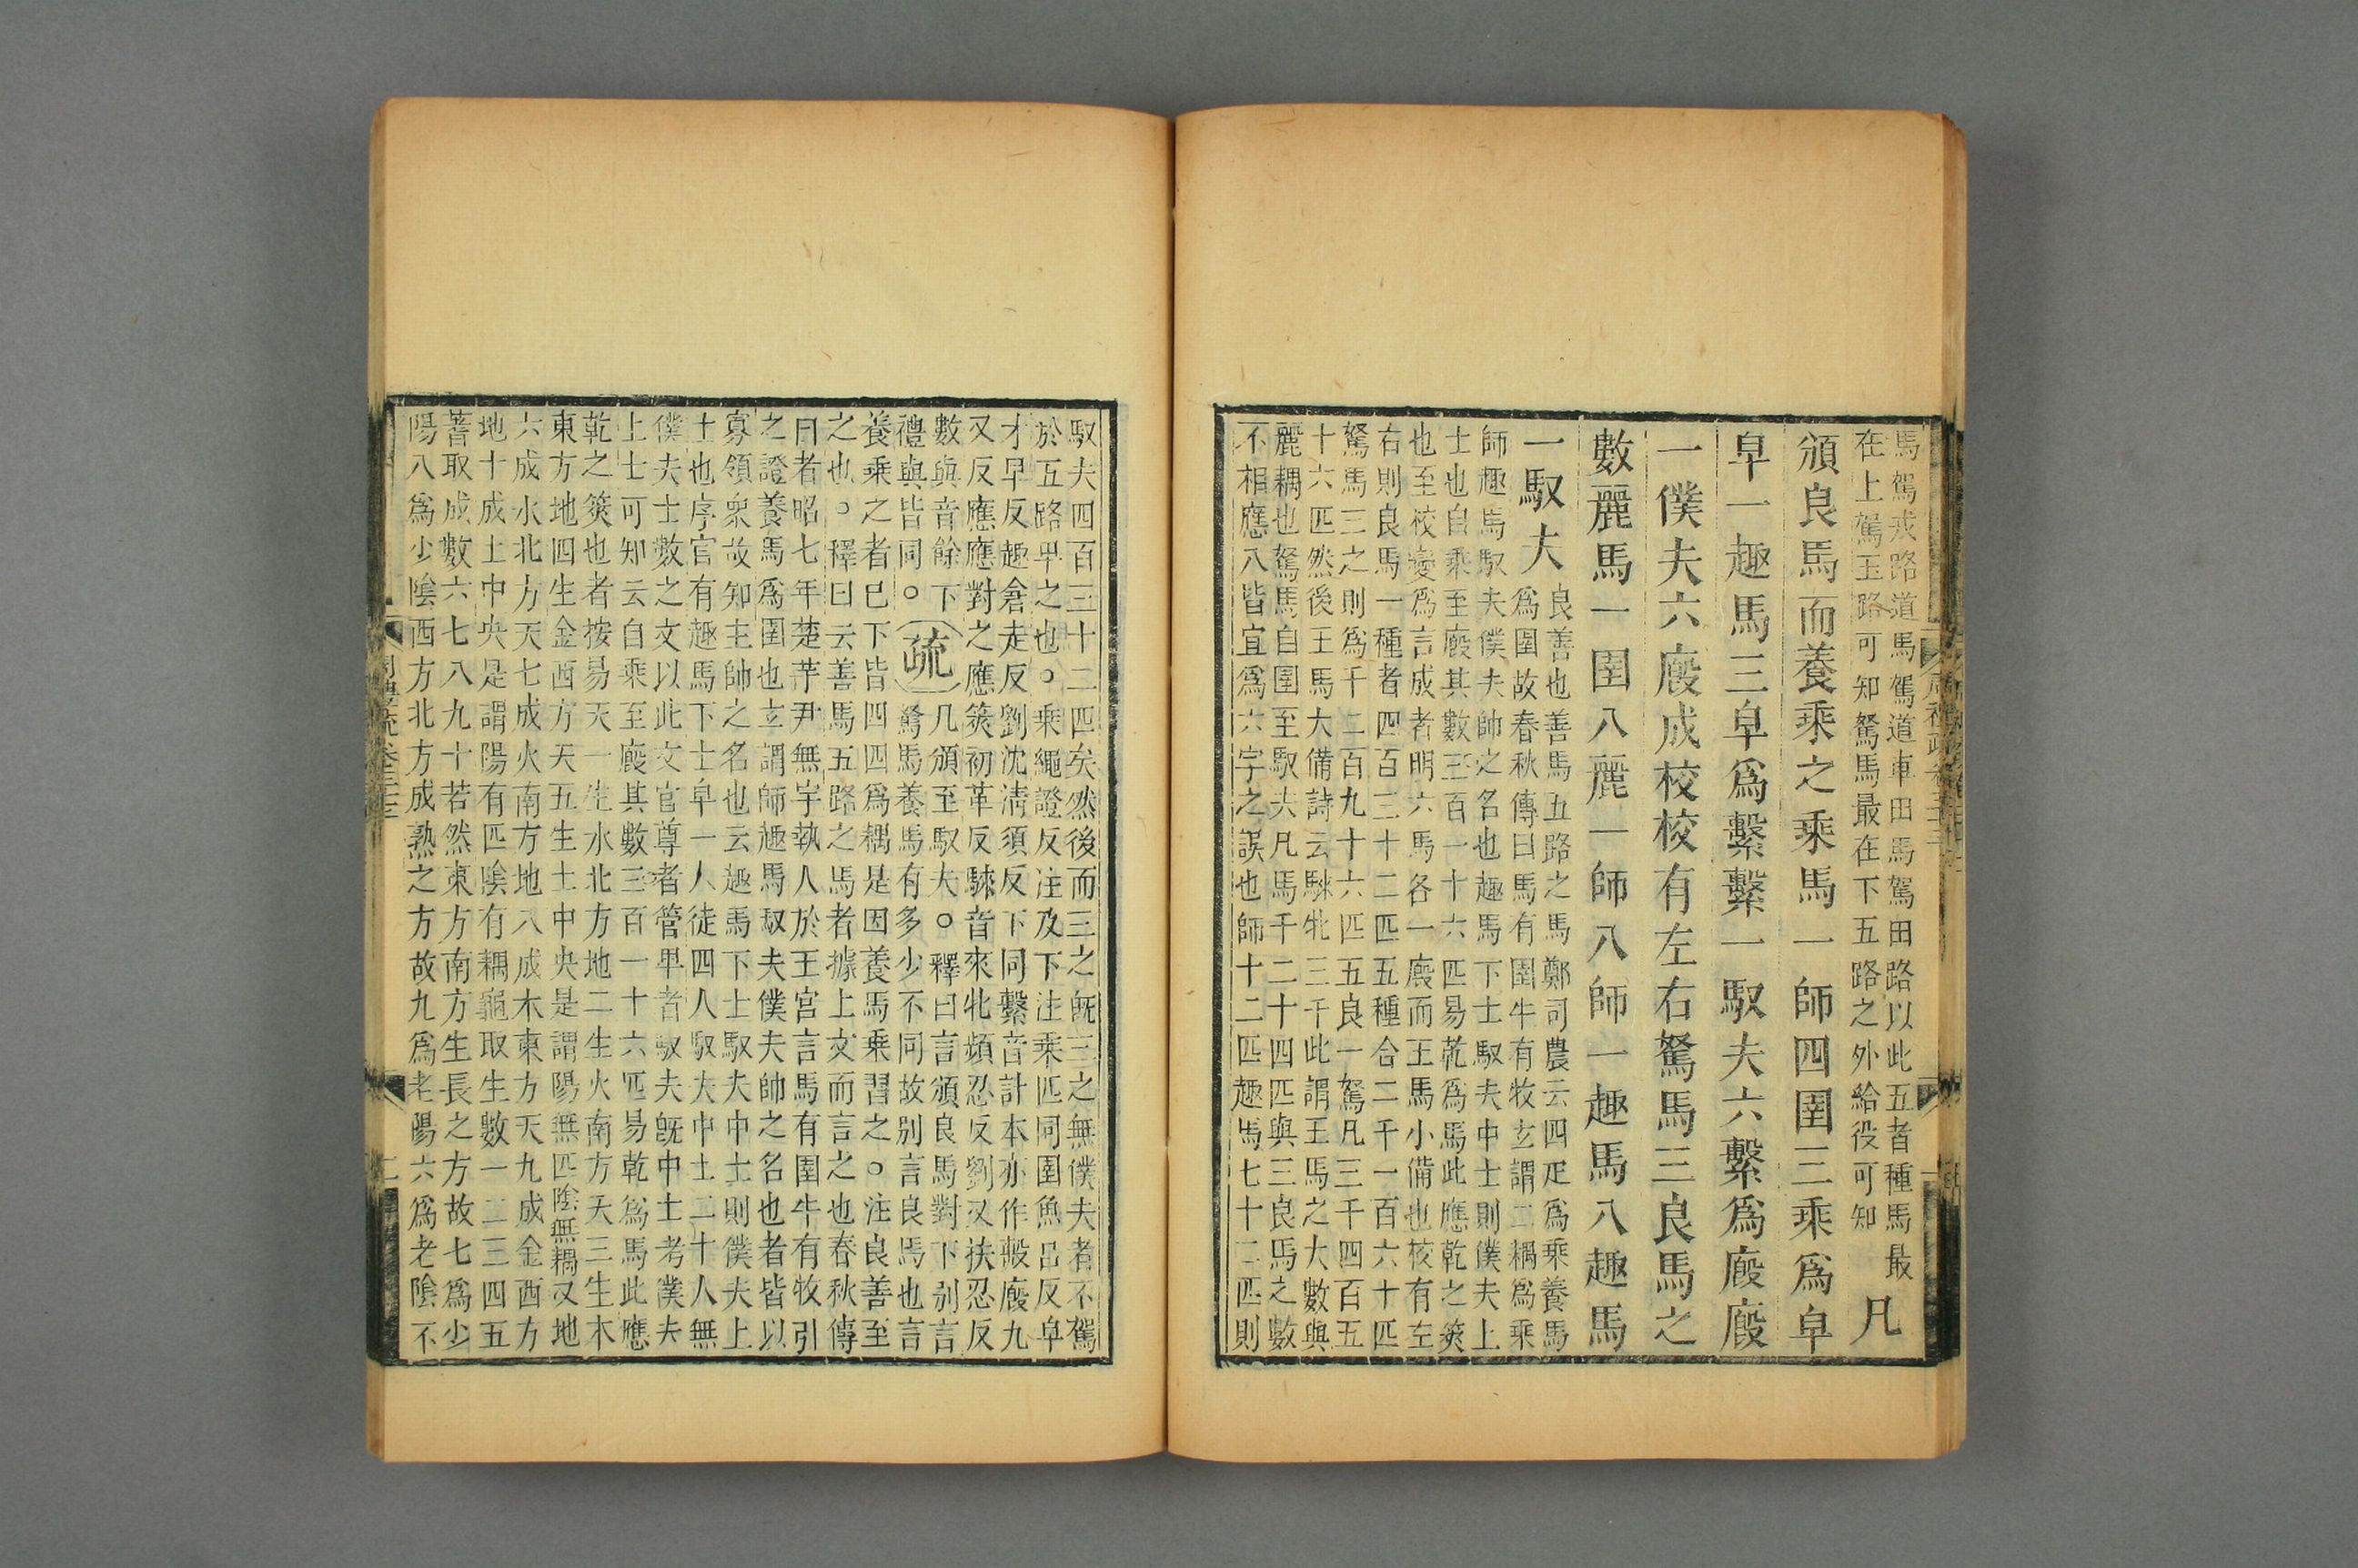 馬駕戎路道馬駕道車田馬駕田路以此五者種馬最
在上駕玉路可知駑馬最在下五路之外給役可知
凡
頒良馬而養乘之乘馬一師四圉三乘爲皁
皁一趣馬三皁爲繫繫一馭夫六繫爲廄廄
一僕夫六廄成校校有左右駑馬三良馬之
數麗馬一圉八麗一師八師一趣馬八趣馬
一馭夫
良善也善馬五路之馬鄭司農云四疋爲乘養馬
爲圉故春秋傳曰馬有圉牛有牧玄謂二耦爲乘
師趣馬馭夫僕夫帥之名也趣馬下士馭夫中士則僕夫上
士也自乘至廄其數三百一十六匹易乾爲馬此應乾之筴
也至校變爲言成者明六馬各一廄而王馬小備也校有左
右則良馬一種者四百三十二匹五種合二千一百六十匹
駑馬三之則爲千二百九十六匹五良一駑凡三千四百五
十六匹然後王馬大備詩云騋牝三千此謂王馬之大數與
麗耦也駑馬自圉至馭夫凡馬千二十四匹與三良馬之數
不相應八皆宜爲六字之誤也師十二匹趣馬七十二匹則
馭夫四百三十二匹矣然後而三之旣三之無僕夫者不駕
於五路卑之也○乘繩證反注及下注乘匹同圉魚呂反皁
才早反趣倉走反劉沈淸須反下同繫音計本亦作毄廄九
又反應應對之應筴初革反騋音來牝頻忍反劉又扶忍反
數與音餘下○疏凡頒至馭夫○釋曰言頒良馬對下别言
禮與皆同○駑馬養馬有多少不同故别言良馬也言
養乘之者已下皆四四爲耦是因養馬乘習之○注良善至
之也○釋曰云善馬五路之馬者據上文而言之也春秋傳
曰者昭七年楚芋尹無宇執人於王宮言馬有圉牛有牧引
之證養馬爲圉也玄謂師趣馬馭夫僕夫帥之名也者皆以
寡領衆故知主帥之名也云趣馬下士馭夫中士則僕夫上
士也序官有趣馬下士皁一人徒四人馭夫中士二十人無
僕夫士數之文以此文官尊者管卑者馭夫旣中士考僕夫
上士可知云自乘至廄其數三百一十六匹易乾爲馬此應
乾之筴也者按易天一生水北方地二生火南方天三生木
東方地四生金西方天五生土中央是謂陽無匹陰無耦又地
六成水北方天七成火南方地八成木東方天九成金西方
地十成土中央是謂陽有匹陰有耦龜取生數一二三四五
蓍取成數六七八九十若然東方南方生長之方故七爲少
陽八爲少陰西方北方成熟之方故九爲老陽六爲老陰不